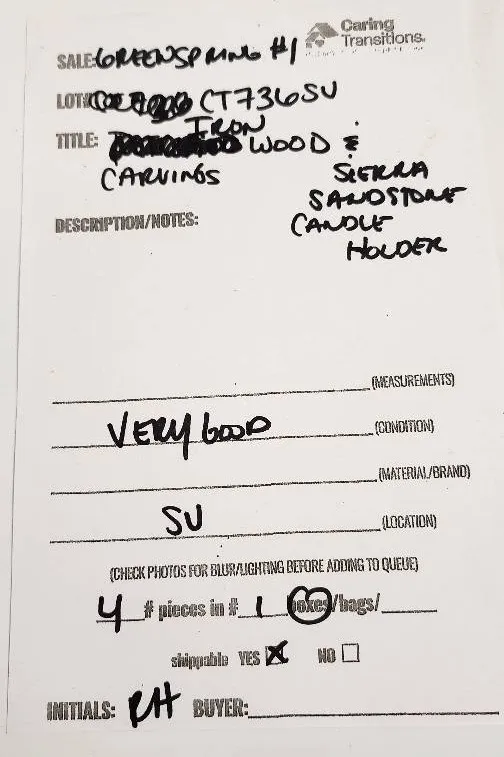 Caring
Transitions.
SALE: GREENSPRING #1
LOT# CT736SU
TITLE: IRON WOOD &
CARVINGS
SIERRA
SANDSTONE
CANDLE
HOLDER
DESCRIPTION/NOTES:
(MEASUREMENTS)
VERY GOOD (CONDITION)
(MATERIAL/BRAND)
SU (LOCATION)
(CHECK PHOTOS FOR BLUR/LIGHTING BEFORE ADDING TO QUEUE)
4 # pieces in # 1 boxes/bags/
shippable YES X NO
INITIALS: RH BUYER: